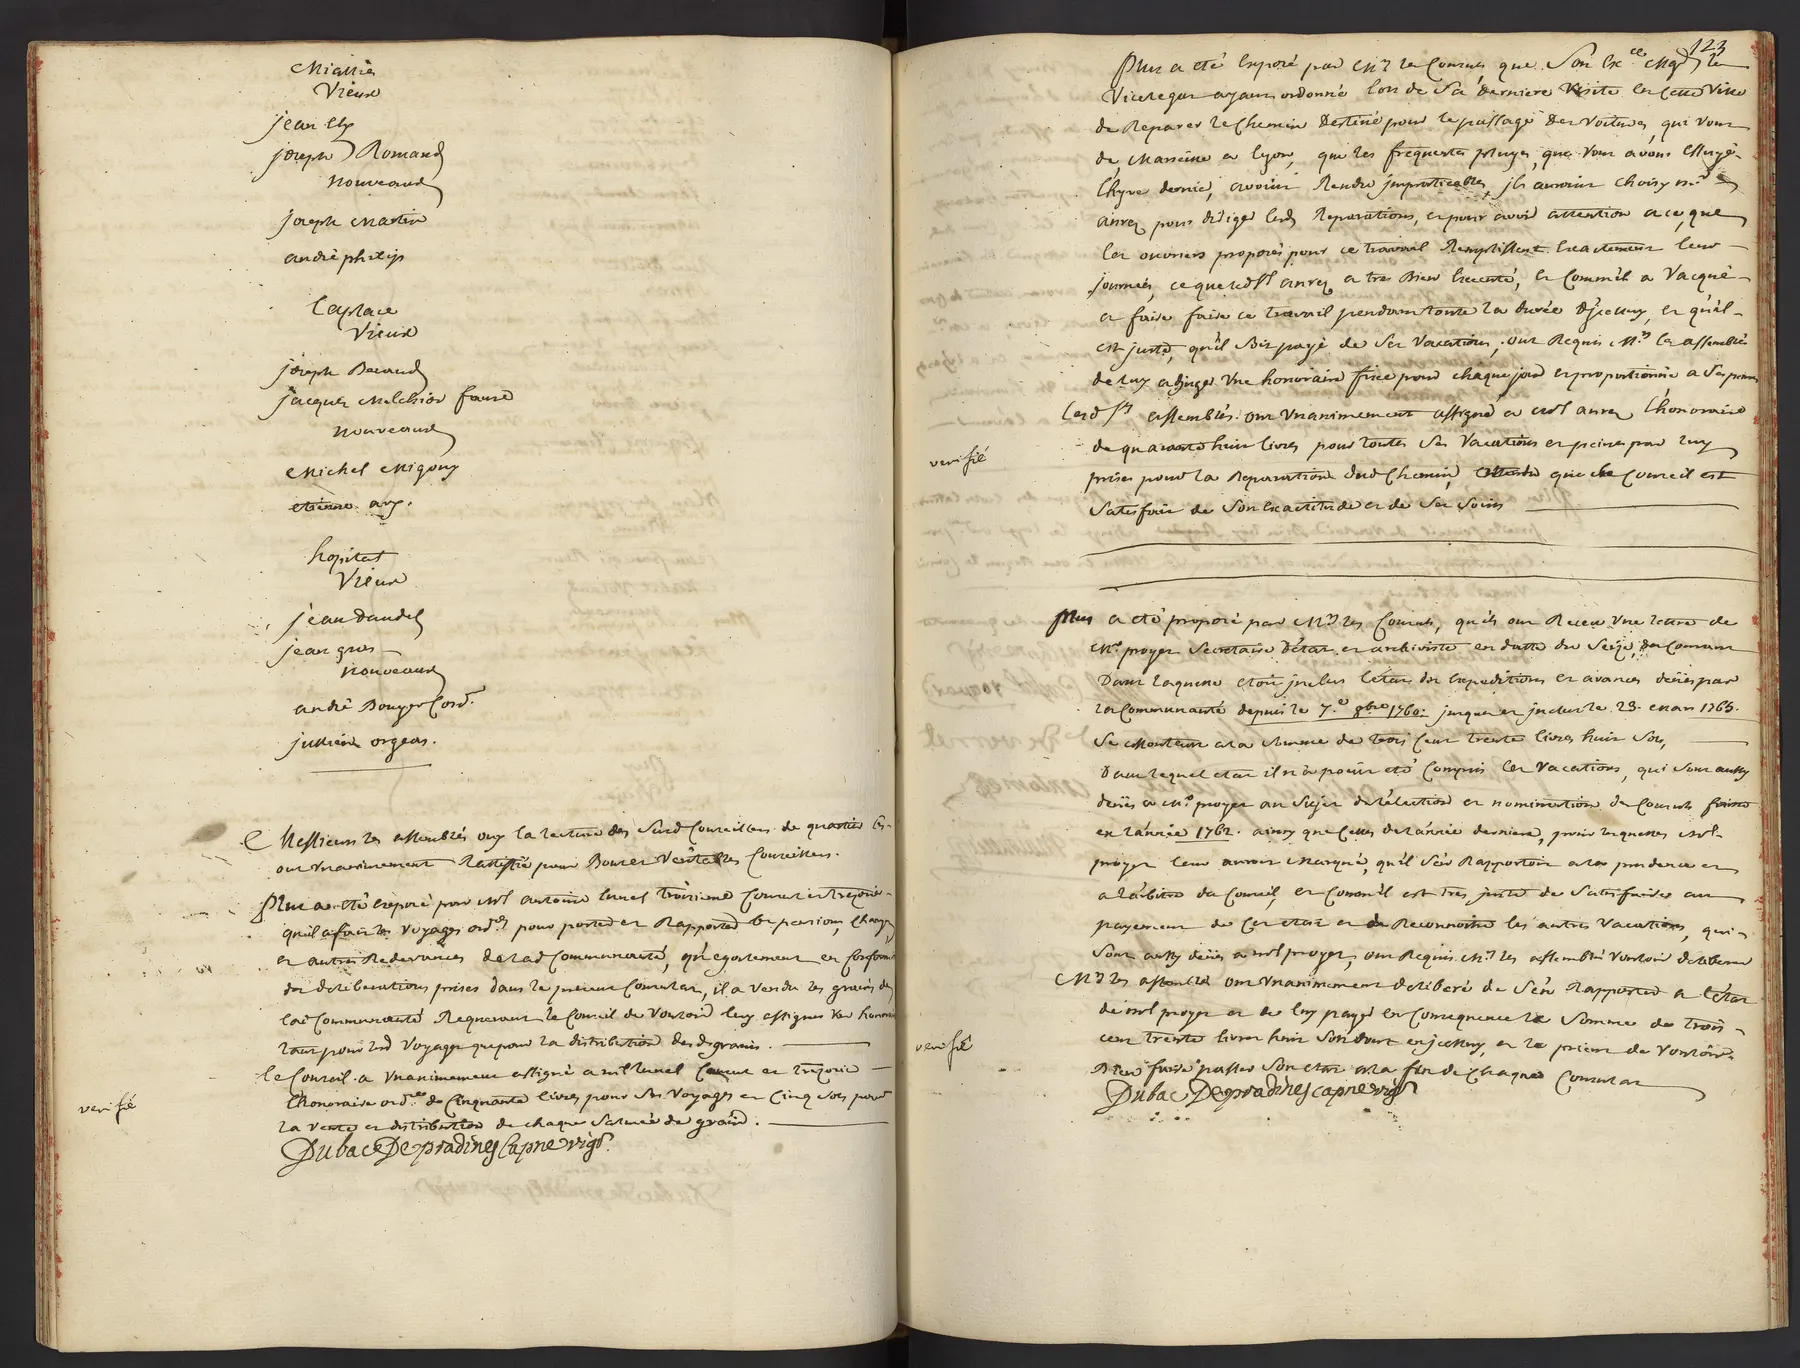 Vieux
jean
joseph Romand
nouveaux
joseph Martin
andré philip
Laplace
Vieux
joseph Beraud
jacques Melchior faure
nouveaux
Michel Migouy
etienne
hopital
Vieux
jean daudel
jean gros
nouveaux
andré Bouger Cord.r
jullien orgeas.
Messieurs les assemblés ouy la lecture des Susd Conseillers de quartier les
ont unanimement Rattiffié pour Bons et Veritables Conseillers.
Plus a eté exposé par Mr antoine lunel troisieme Consul et trezorier
qu'il a fait les voyages ord.res pour porter et Rapporter les pensions, charges
et autres Redevances de lad Communauté, qu'egalement en Conform
des deliberations prises dans le present Consulat, il a vendu les grains de
lad Communauté Requerant le Conseil de vouloir luy assigner un honno
raire pour lesd voyages que pour la distribution desd grains.
le Conseil a unanimement assigné a Mr lunel Consul et trezorier
l'honoraire ord.re de Cinquante livres pour ses voyages et Cinq sols pour
la vente et distribution de chaque salmée de grain.
verifié
Dubac De pradines Capne vig.r
123
Plus a eté exposé par Mrs les Consuls que Son Exce Mgr le
Vicelegat ayant ordonné lors de Sa derniere Visite en Cette Ville
de Reparer le Chemin Destiné pour le passage des voitures, qui vont
de Marseille a Lyon, que les frequentes pluyes, que nous avons essuyé
l'hyver dernier, avoient Rendu jmpraticables, jls auroient choisy Mr
anrez pour diriger lesd Reparations, et pour avoir attention a ce, que
les ouvriers proposés pour ce travail Remplissent Exactement leur
journée, ce que led Sr anrez a tres Bien Executé, et Comm'il a Vacqué
a faire faire ce travail pendant toute la durée d'jcelluy, et qu'il
est juste, qu'il Soit payé de Ses Vacations, ont Requis Mrs les assemblés
de luy adjuger Une honoraire fixe pour chaque jour et proportionnée a Ses peines
Lesd Srs assemblés ont Unanimement assigné a Mr anrez l'honoraire
de quarante huit livres pour toutes Ses Vacations et peines par luy
prises pour la Reparation dud Chemin, attendu que le Conseil est
Satisfait de Son Exactitude et de Ses Soins
verifié
Plus a eté proposé par Mrs les Consuls, qu'ils ont Receu Une lettre de
Mr proyet Secretaire D'état et archiviste en datte du Seize du Courant
Dans laquelle etoit jnclus l'état des Expeditions et avances deües par
la Communauté depuis le 7.e 8bre 1760. jusques et jnclus le 23. Mars 1763.
Se Montant a la Somme de trois Cent trente livres huit Sols,
Dans lequel etat il n'a point eté Compris les Vacations, qui Sont aussy
deües a Mr proyet au Sujet de l'élection et nomination des Consuls faitte
en l'année 1762. ainsy que Celles de l'année derniere, pour lesquelles Mr
proyet leur auroit Marqué, qu'il S'en Rapportoit a la prudence et
a l'arbitre du Conseil, et Comm'il est tres juste de Satisfaire au
payement de Cet etat et de Reconnoitre les autres Vacations, qui
Sont aussy deües a Mr proyet, ont Requis Mrs les assemblés Vouloir deliberer
Mrs les assemblés ont Unanimement deliberé de S'en Rapporter a l'état
de Mr proyet et de luy payer en Consequence la Somme de trois
cent trente livres huit Sols dont en jcelluy, et le prient de Vouloir
Bien faire passer Son etat a la fin de Chaque Consulat
verifié
Dubac De pradines capne vig.r